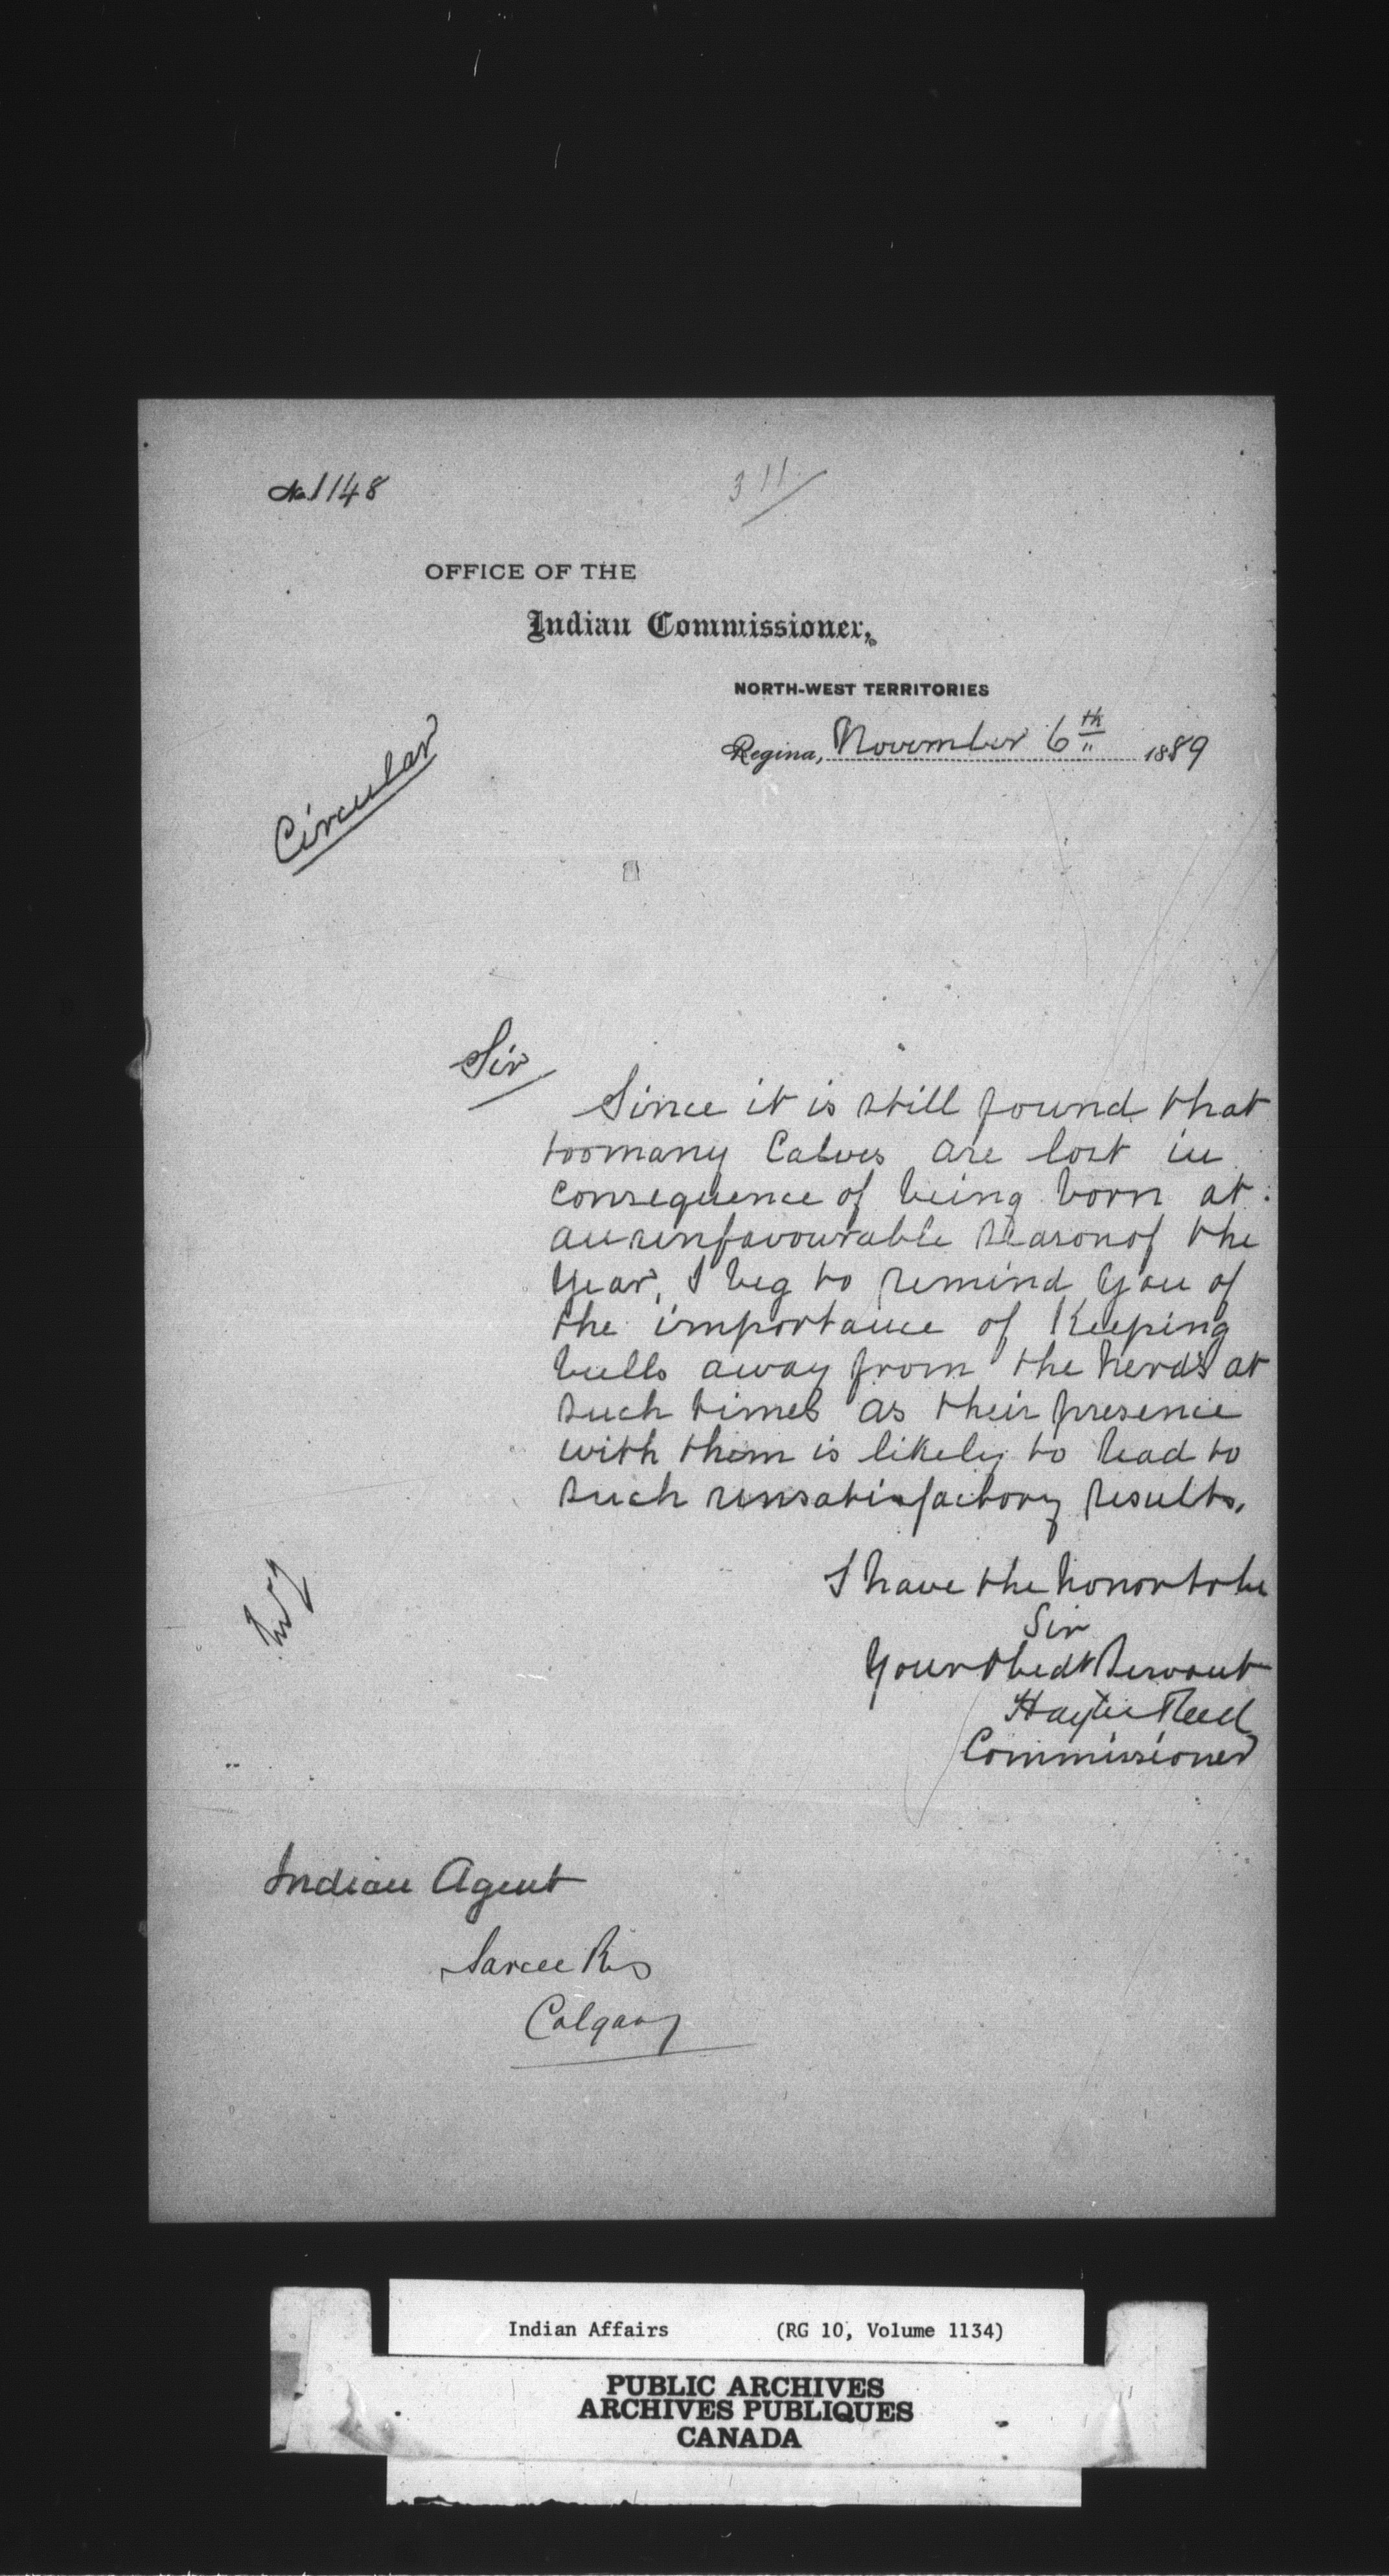 No 1148
311
OFFICE OF THE
Indian Commissioner,
NORTH-WEST TERRITORIES
Regina, November 6th 1889
Circular
Sir
Since it is still found that
too many Calves are lost in
consequence of being born at
an unfavourable season of the
Year, I beg to remind you of
the importance of Keeping
bulls away from the herds at
such times as their presence
with them is likely to lead to
such unsatisfactory results.
I have the honor to be
Sir
Your Obedt Servant
Hayter Reed
Commissioner
Indian Agent
Sarcee Res
Calgary
Indian Affairs (RG 10, Volume 1134)
PUBLIC ARCHIVES
ARCHIVES PUBLIQUES
CANADA